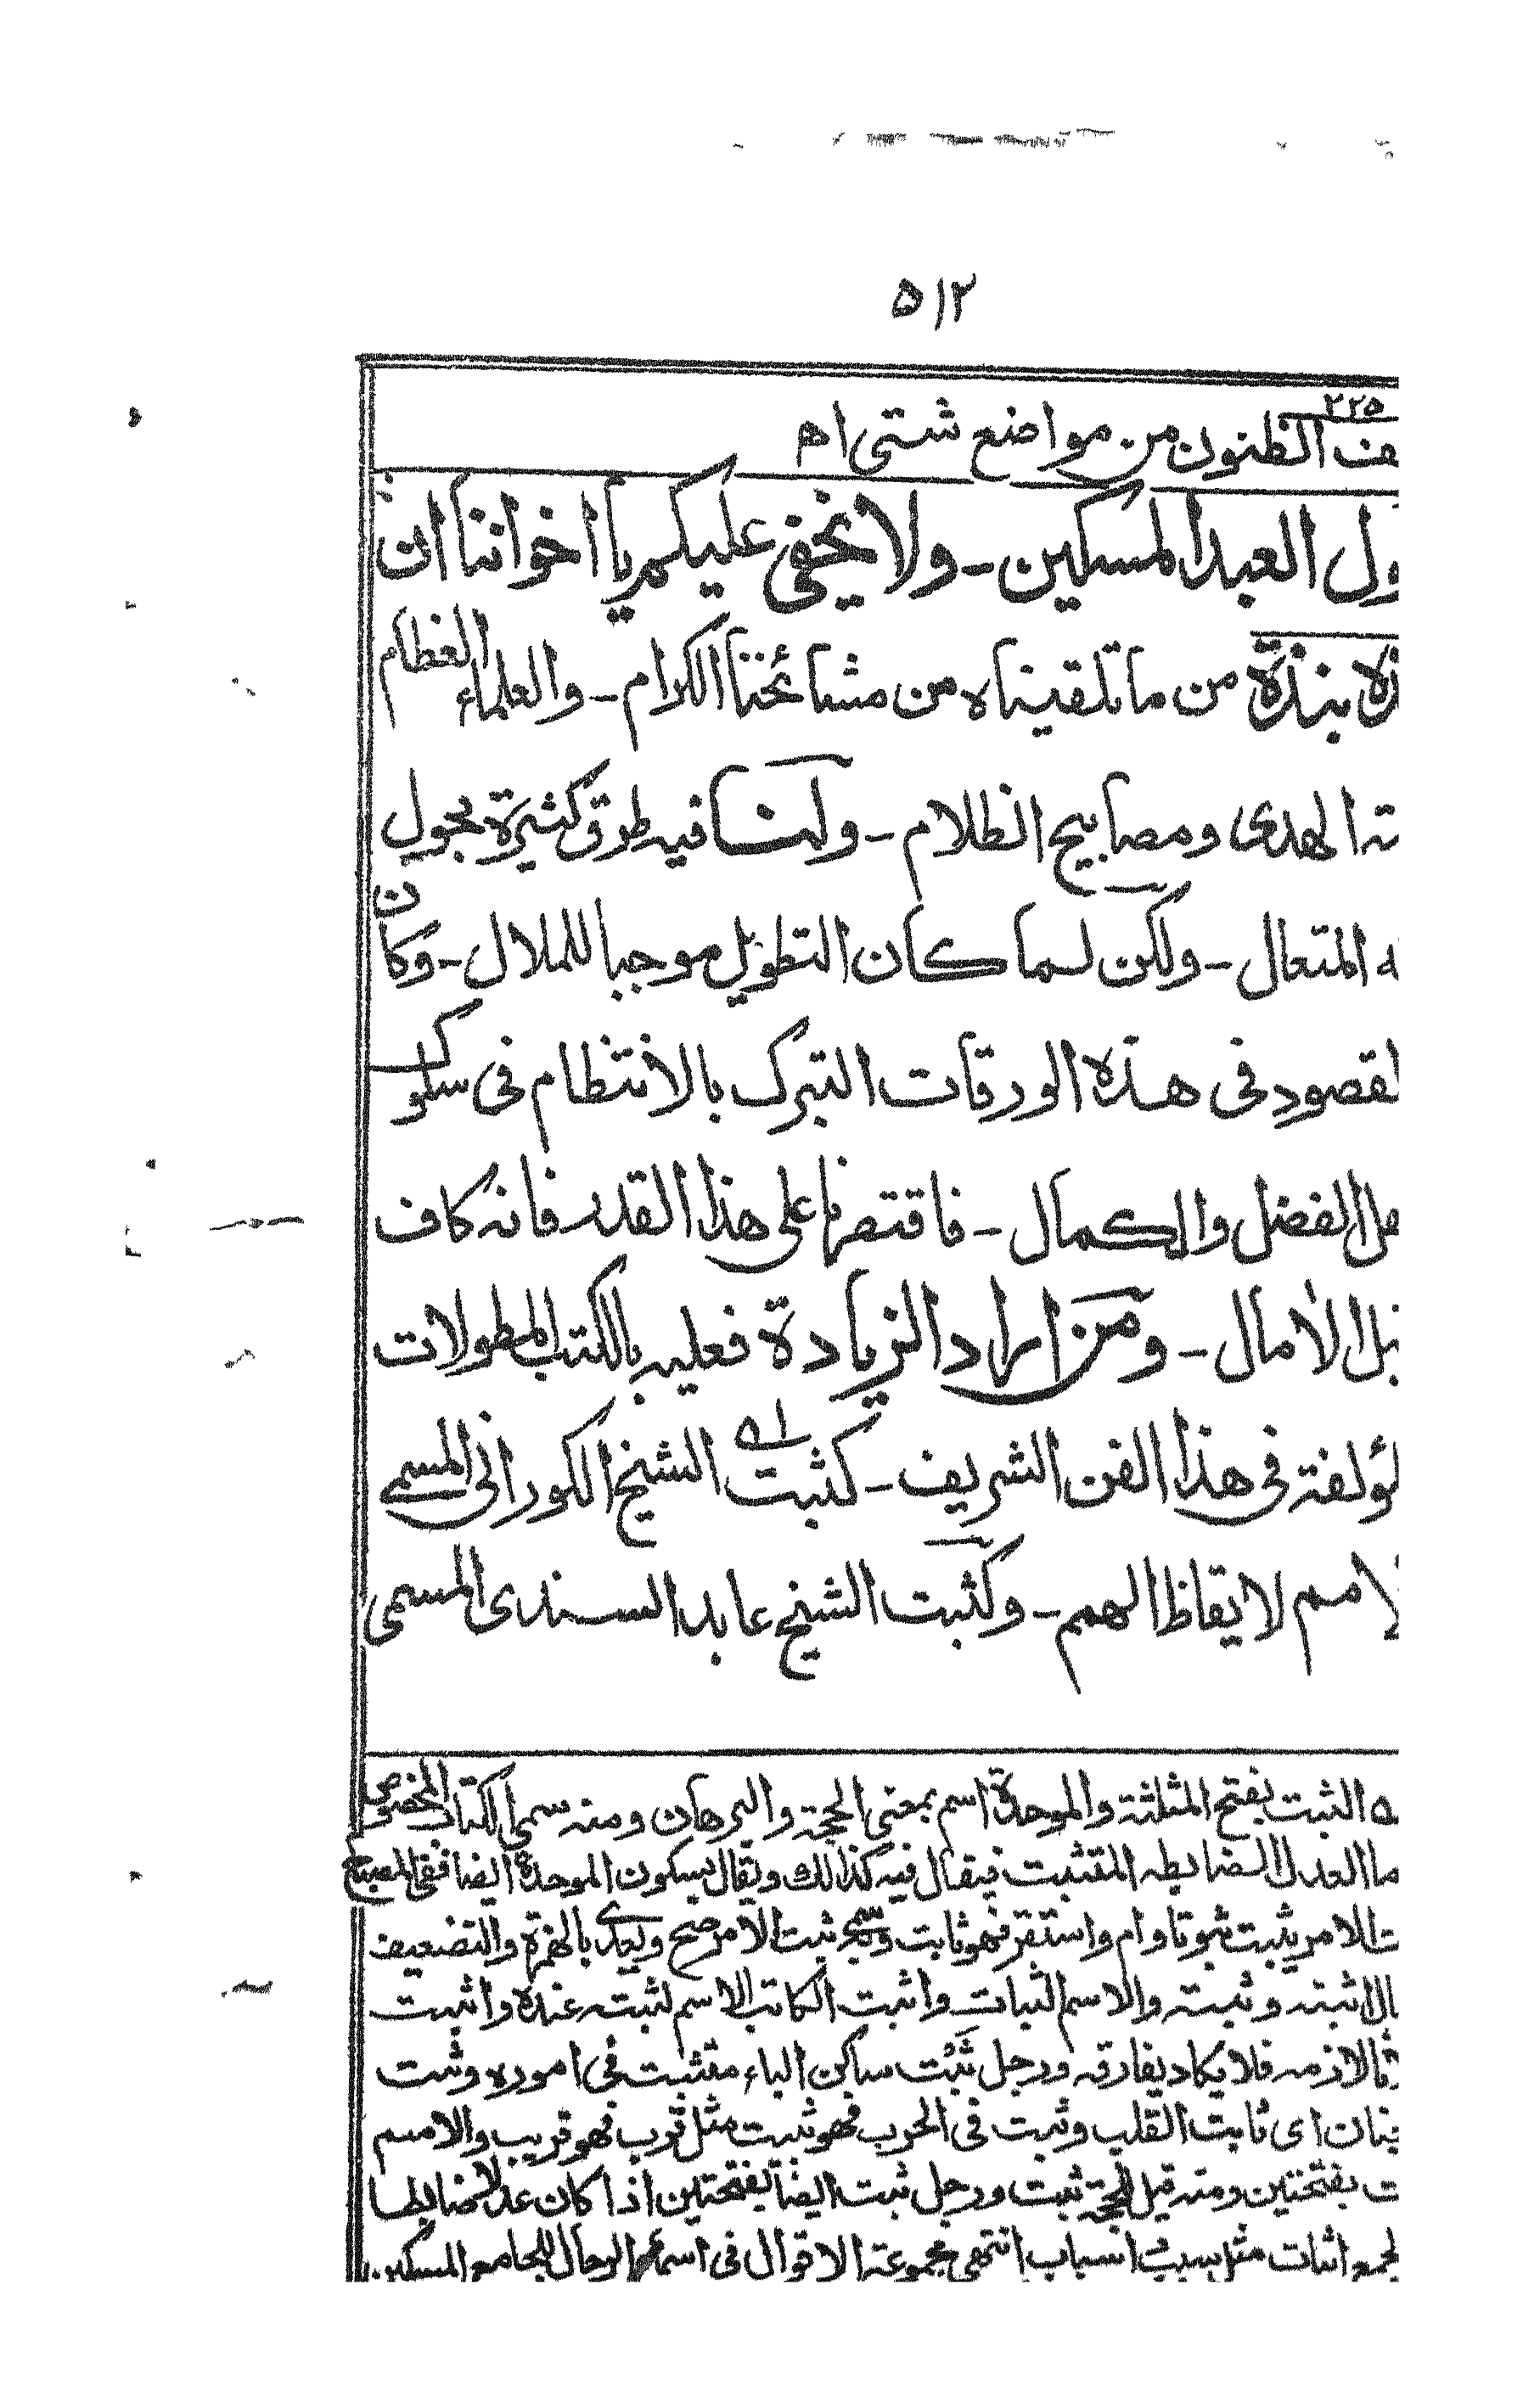 ٥١٢
٢٢٥
ف الظنون من مواضع شتى اه
ول العبد المسكين - ولا يخفى عليكم يا اخواننا ان
ذه بنذة من ما تلقيناه من مشائخنا الكرام - والعلماء العظام
ته الهدى ومصابيح الظلام - ولنا فيه طرق كثيرة بحول
ه المتعال - ولكن لما كان التطويل موجبا للملال - وكان
لقصود فى هذه الورقات التبرك بالانتظام فى سلوك
هل الفضل والكمال - فاقتصرنا على هذا القدر فانه كاف
نبل الآمال - ومن اراد الزيادة فعليه بالكتب المطولات
لؤلفة فى هذا الفن الشريف - كثبت اه الشيخ الكورانى المسمى
لامم لايقاظ الهمم - وكثبت الشيخ عابد السندى المسمى
ه الثبت بفتح المثلثة والموحدة اسم بمعنى الحجة والبرهان ومنه سمى الكتاب المخصوص
ما العدل الضابطه المتثبت فيقال فيه كذالك ويقال بسكون الموحدة ايضا ففى المصباح
ت الامر يثبت ثبوتا دام واستقر فهو ثابت وسمى ثبت الامر صح ويعدى بالهمزة والتضعيف
ال اثبته وثبته والاسم الثبات واثبت الكاتب الاسم لثبته عنده واثبت
نا لازمه فلا يكاد يفارقه ورجل ثبت ساكن الباء متثبت فى اموره وثبت
نان اى ثابت القلب وثبت فى الحرب فهو ثبت مثل قرب فهو قريب والاسم
ت بفتحتين ومنه قيل للحجة ثبت ورجل ثبت ايضا بفتحتين اذا كان عدلا ضابطا
لجمع اثبات مثل سبب اسباب انتهى مجموعة الاقوال فى اسماء الرجال للجامع المسكين